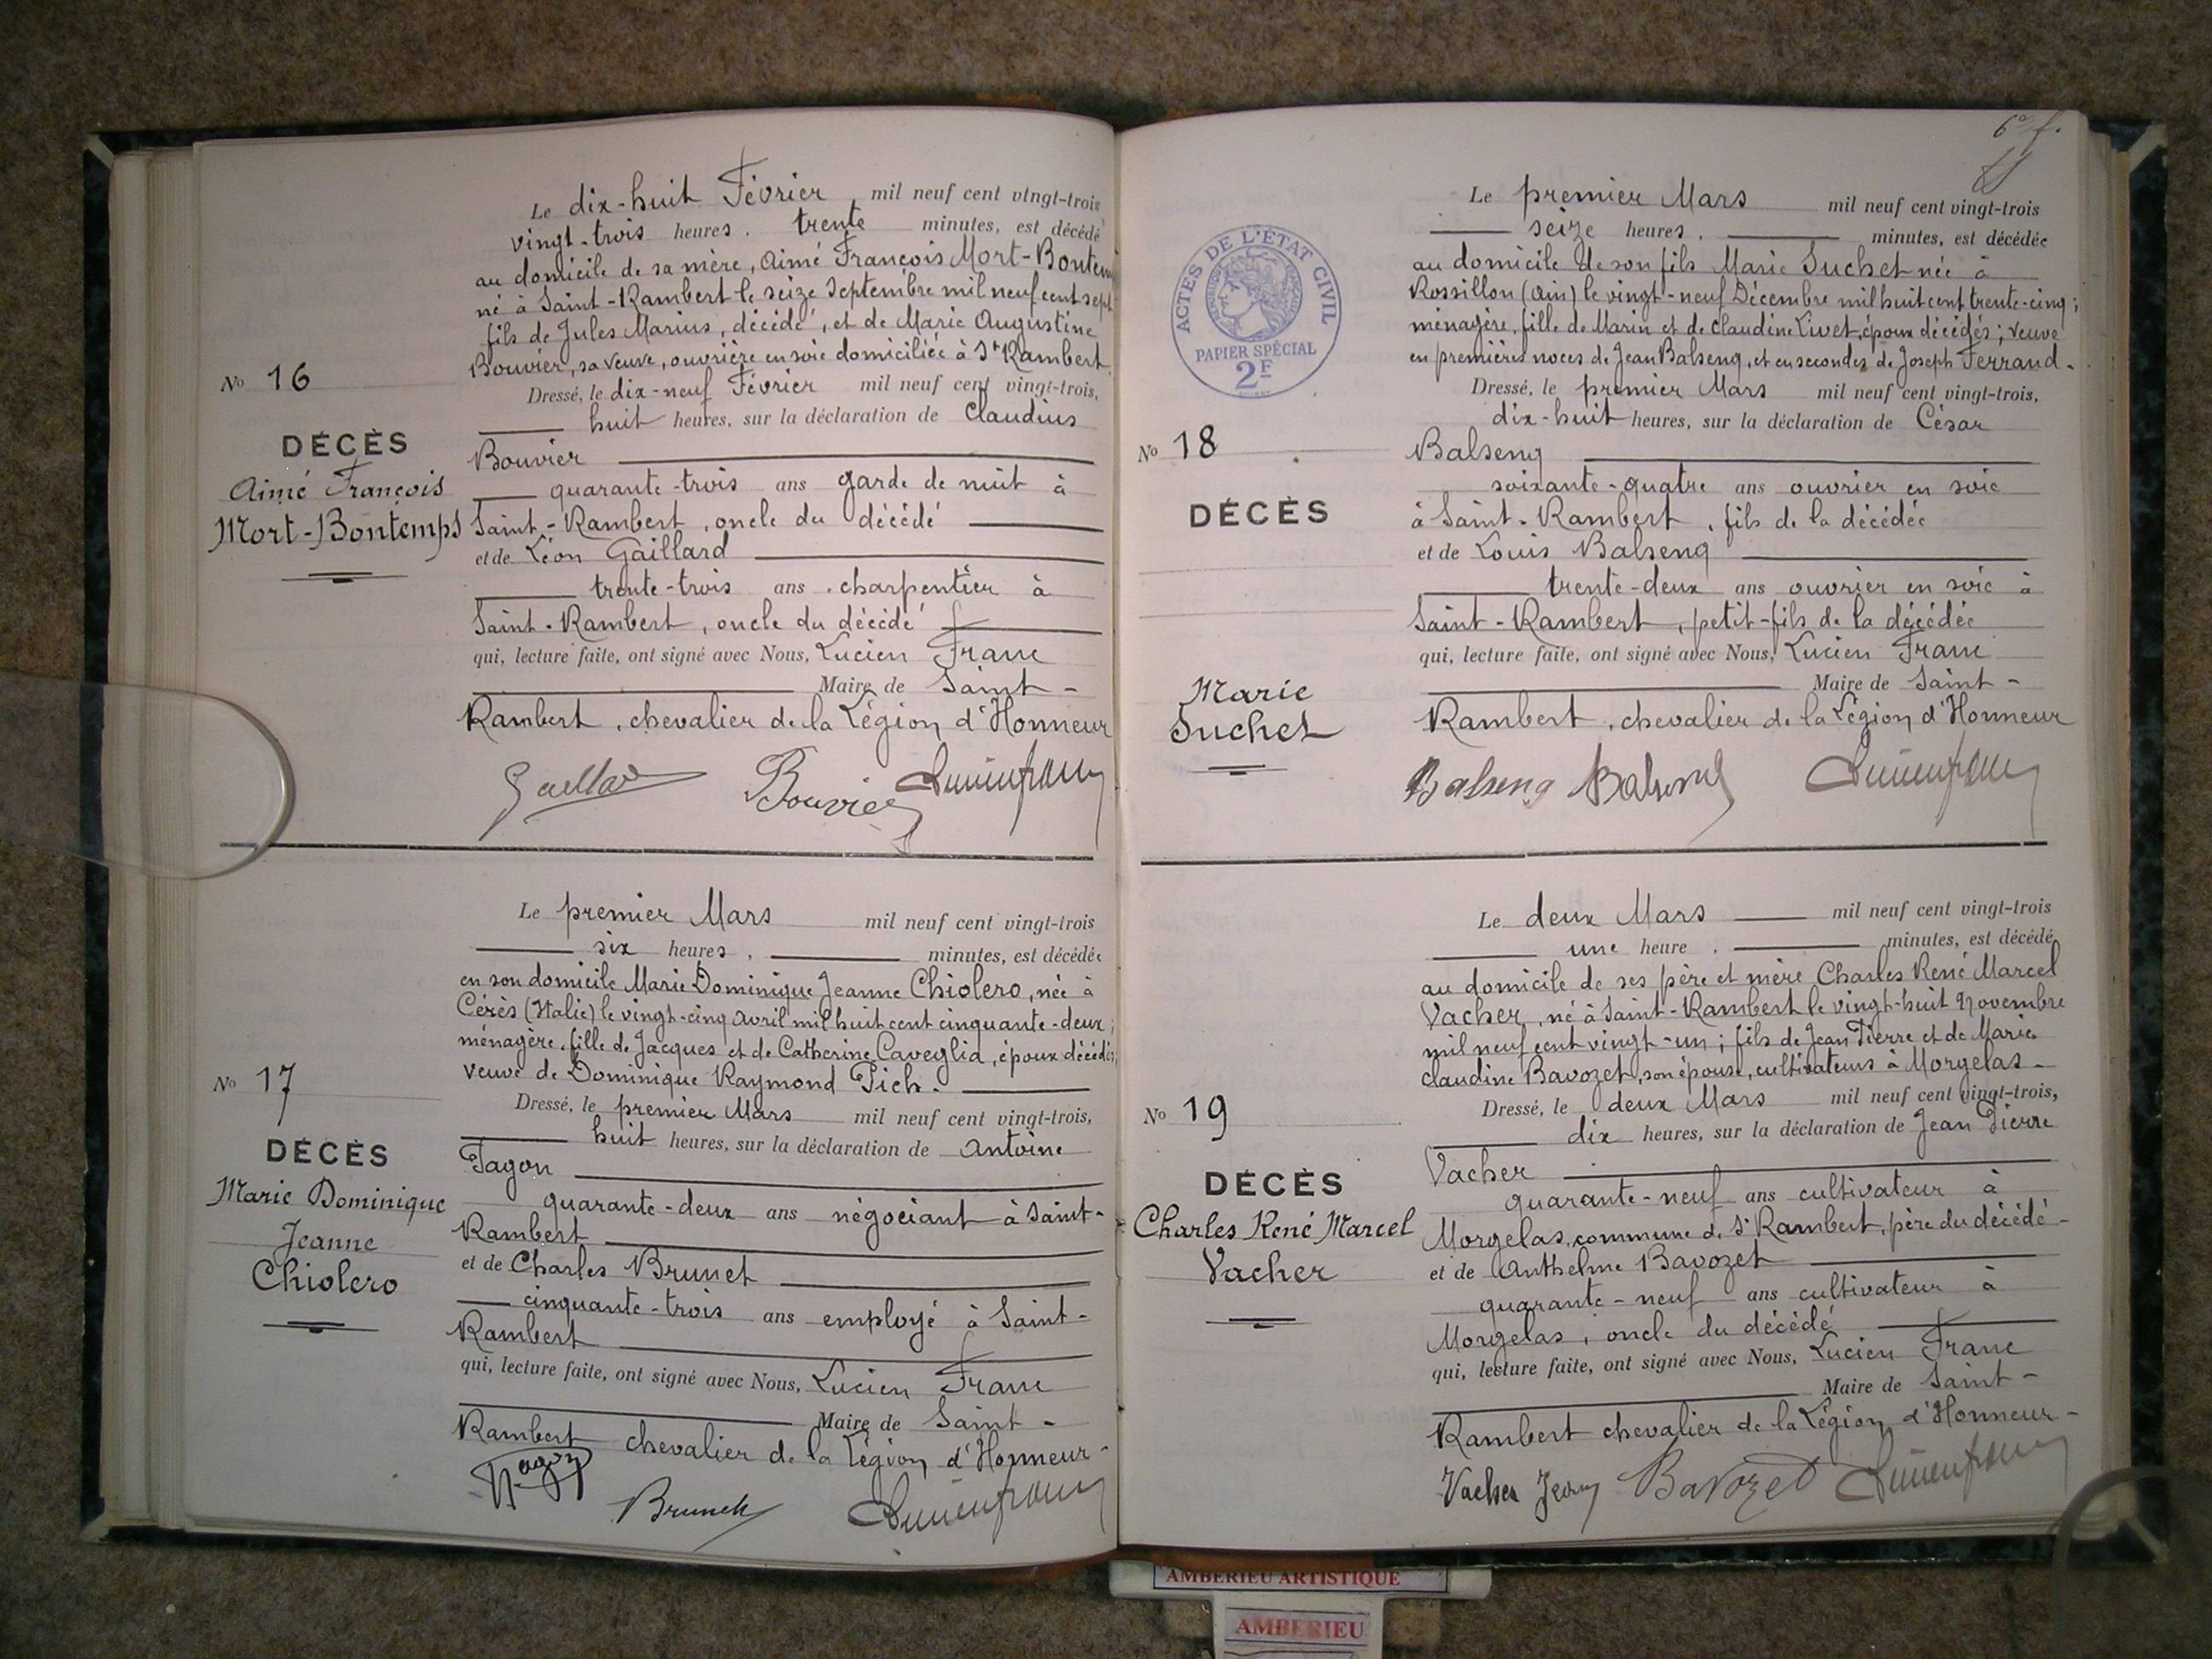 Le dix-huit Février mil neuf cent vingt-trois
vingt-trois heures, trente minutes, est décédé
au domicile de sa mère, Aimé François Mort-Bontem
né à Saint-Rambert le seize Septembre mil neuf cent sept
fils de Jules Marius, décédé, et de Marie Augustine
Bouvier, sa veuve, ouvrière en soie domiciliée à St Rambert.
Nº 16
Dressé, le dix-neuf Février mil neuf cent vingt-trois,
huit heures, sur la déclaration de Claudius
DÉCÈS
Bouvier
Aimé François
quarante-trois ans garde de nuit à
Mort-Bontemps
Saint-Rambert, oncle du décédé
et de Léon Gaillard
trente-trois ans charpentier à
Saint-Rambert, oncle du décédé
qui, lecture faite, ont signé avec Nous, Lucien Franc
Maire de Saint-
Rambert, chevalier de la Légion d'Honneur
Bouvier
Le premier Mars mil neuf cent vingt-trois
six heures, minutes, est décédée
en son domicile Marie Dominique Jeanne Chiolero, née à
Cérès (Italie) le vingt-cinq Avril mil huit cent cinquante-deux;
ménagère, fille de Jacques et de Catherine Caveglia, époux décédés,
veuve de Dominique Raymond Pich.
Nº 17
Dressé, le premier Mars mil neuf cent vingt-trois,
huit heures, sur la déclaration de Antoine
DÉCÈS
Fagon
Marie Dominique
Jeanne
Chiolero
quarante-deux ans négociant à Saint-
Rambert
et de Charles Brunet
cinquante-trois ans employé à Saint-
Rambert
qui, lecture faite, ont signé avec Nous, Lucien Franc
Maire de Saint-
Rambert chevalier de la Légion d'Honneur-
Brunet
6e f.
ACTES DE L'ÉTAT CIVIL
PAPIER SPÉCIAL
2F
Le premier Mars mil neuf cent vingt-trois
seize heures, minutes, est décédée
au domicile de son fils Marie Suchet née à
Rossillon (Ain) le vingt-neuf Décembre mil huit cent trente-cinq;
ménagère, fille de Marin et de Claudine Livet, époux décédés; veuve
en premières noces de Jean Balseng, et en secondes de Joseph Ferrand-
Dressé, le premier Mars mil neuf cent vingt-trois,
dix-huit heures, sur la déclaration de César
Nº 18
Balseng
soixante-quatre ans ouvrier en soie
DÉCÈS
à Saint-Rambert, fils de la décédée
et de Louis Balseng
trente-deux ans ouvrier en soie à
Saint-Rambert, petit-fils de la décédée
qui, lecture faite, ont signé avec Nous, Lucien Franc
Marie
Suchet
Maire de Saint-
Rambert, chevalier de la Légion d'Honneur
Balseng Balseng
Le deux Mars mil neuf cent vingt-trois
une heure, minutes, est décédé
au domicile de ses père et mère Charles René Marcel
Vacher, né à Saint-Rambert le vingt-huit Novembre
mil neuf cent vingt-un; fils de Jean Pierre et de Marie
Claudine Bavozet, son épouse, cultivateurs à Morgelas-
Nº 19
Dressé, le deux Mars mil neuf cent vingt-trois,
dix heures, sur la déclaration de Jean Pierre
DÉCÈS
Vacher
Charles René Marcel
Vacher
quarante-neuf ans cultivateur à
Morgelas, commune de St Rambert, père du décédé-
et de Anthelme Bavozet
quarante-neuf ans cultivateur à
Morgelas, oncle du décédé
qui, lecture faite, ont signé avec Nous, Lucien Franc
Maire de Saint-
Rambert chevalier de la Légion d'Honneur-
Vacher Jean Bavozet
AMBERIEU ARTISTIQUE
AMBERIEU